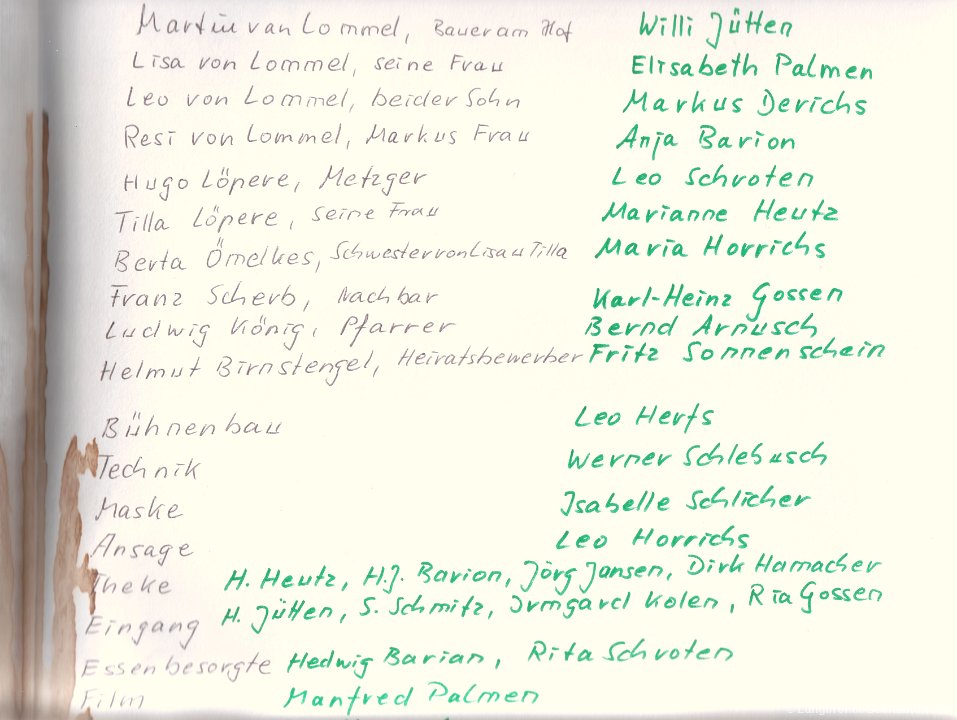 Martin van Lommel, Bauer am Hof Willi Jütten
Lisa von Lommel, seine Frau Elisabeth Palmen
Leo von Lommel, beider Sohn Markus Derichs
Resi von Lommel, Markus Frau Anja Barion
Hugo Löpere, Metzger Leo Schroten
Tilla Löpere, seine Frau Marianne Heutz
Berta Ömelkes, Schwester von Lisa u Tilla Maria Horrichs
Franz Scherb, Nachbar Karl-Heinz Gossen
Ludwig König, Pfarrer Bernd Arnusch
Helmut Birnstengel, Heiratsbewerber Fritz Sonnenschein
Bühnenbau Leo Herfs
Technik Werner Schlebusch
Maske Isabelle Schlicher
Ansage Leo Horrichs
Theke H. Heutz, H.J. Barion, Jörg Jansen, Dirk Hamacher
Eingang H. Jütten, S. Schmitz, Irmgard Kolen, Ria Gossen
Essen besorgte Hedwig Barian, Rita Schroten
Film Manfred Palmen